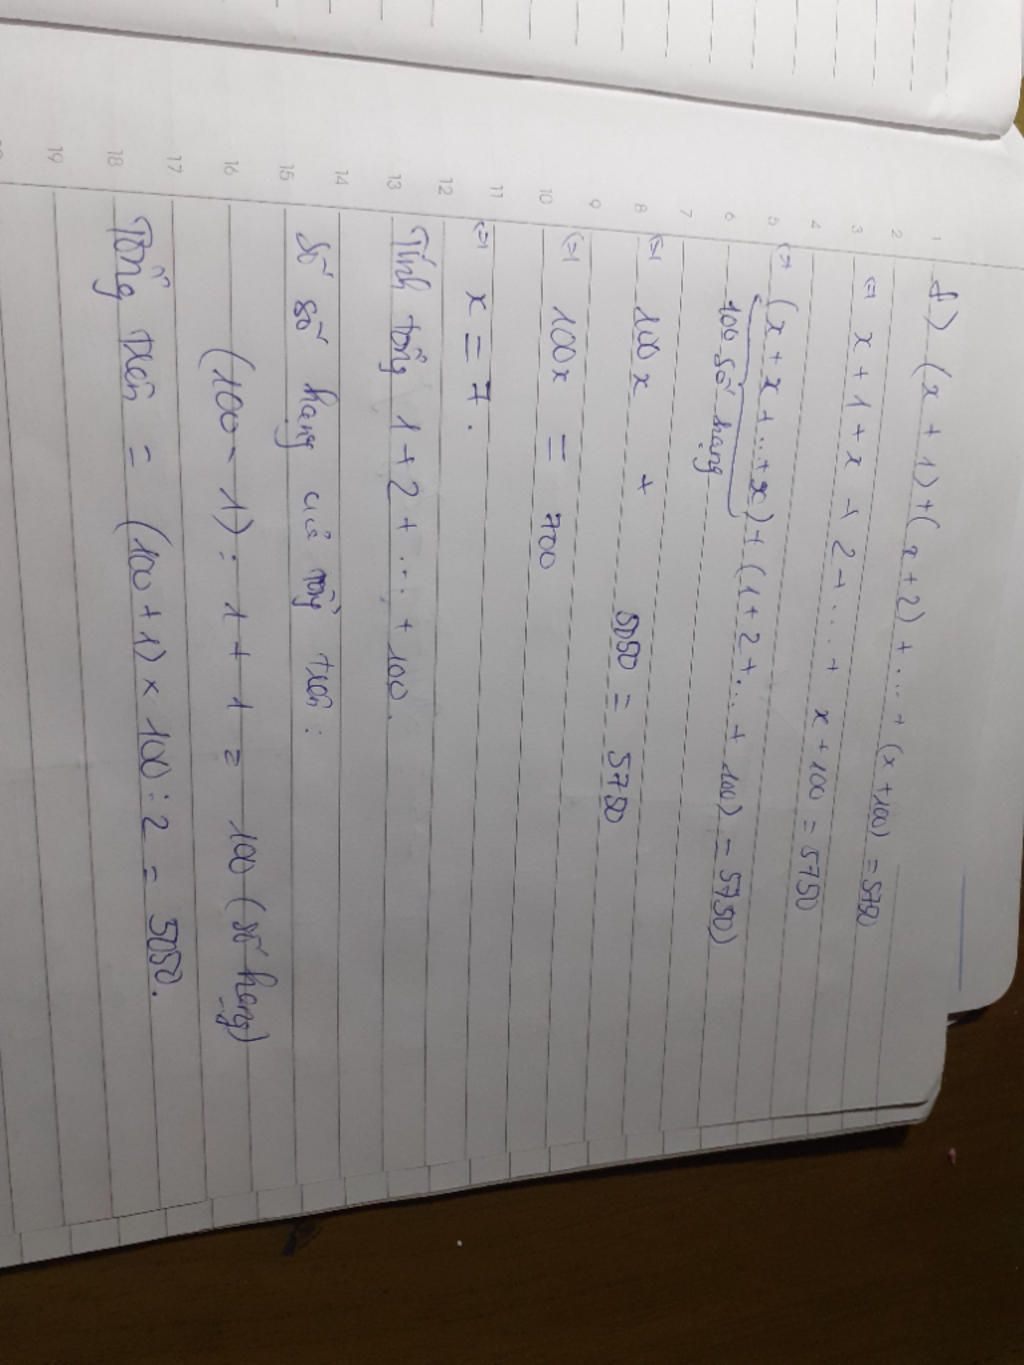 f) (x + 1) + (x + 2) + ... + (x + 100) = 5750
(=) x + 1 + x + 2 + ... + x + 100 = 5750
(=) (x + x + ... + x) + (1 + 2 + ... + 100) = 5750)
100 số hạng
(=) 100x + 5050 = 5750
(=) 100x = 700
(=) x = 7.
Tính tổng 1 + 2 + ... + 100.
Số số hạng của tổng trên :
(100 - 1) : 1 + 1 = 100 (số hạng)
Tổng trên = (100 + 1) × 100 : 2 = 5050.
1
2
3
4
5
6
7
8
9
10
11
12
13
14
15
16
17
18
19